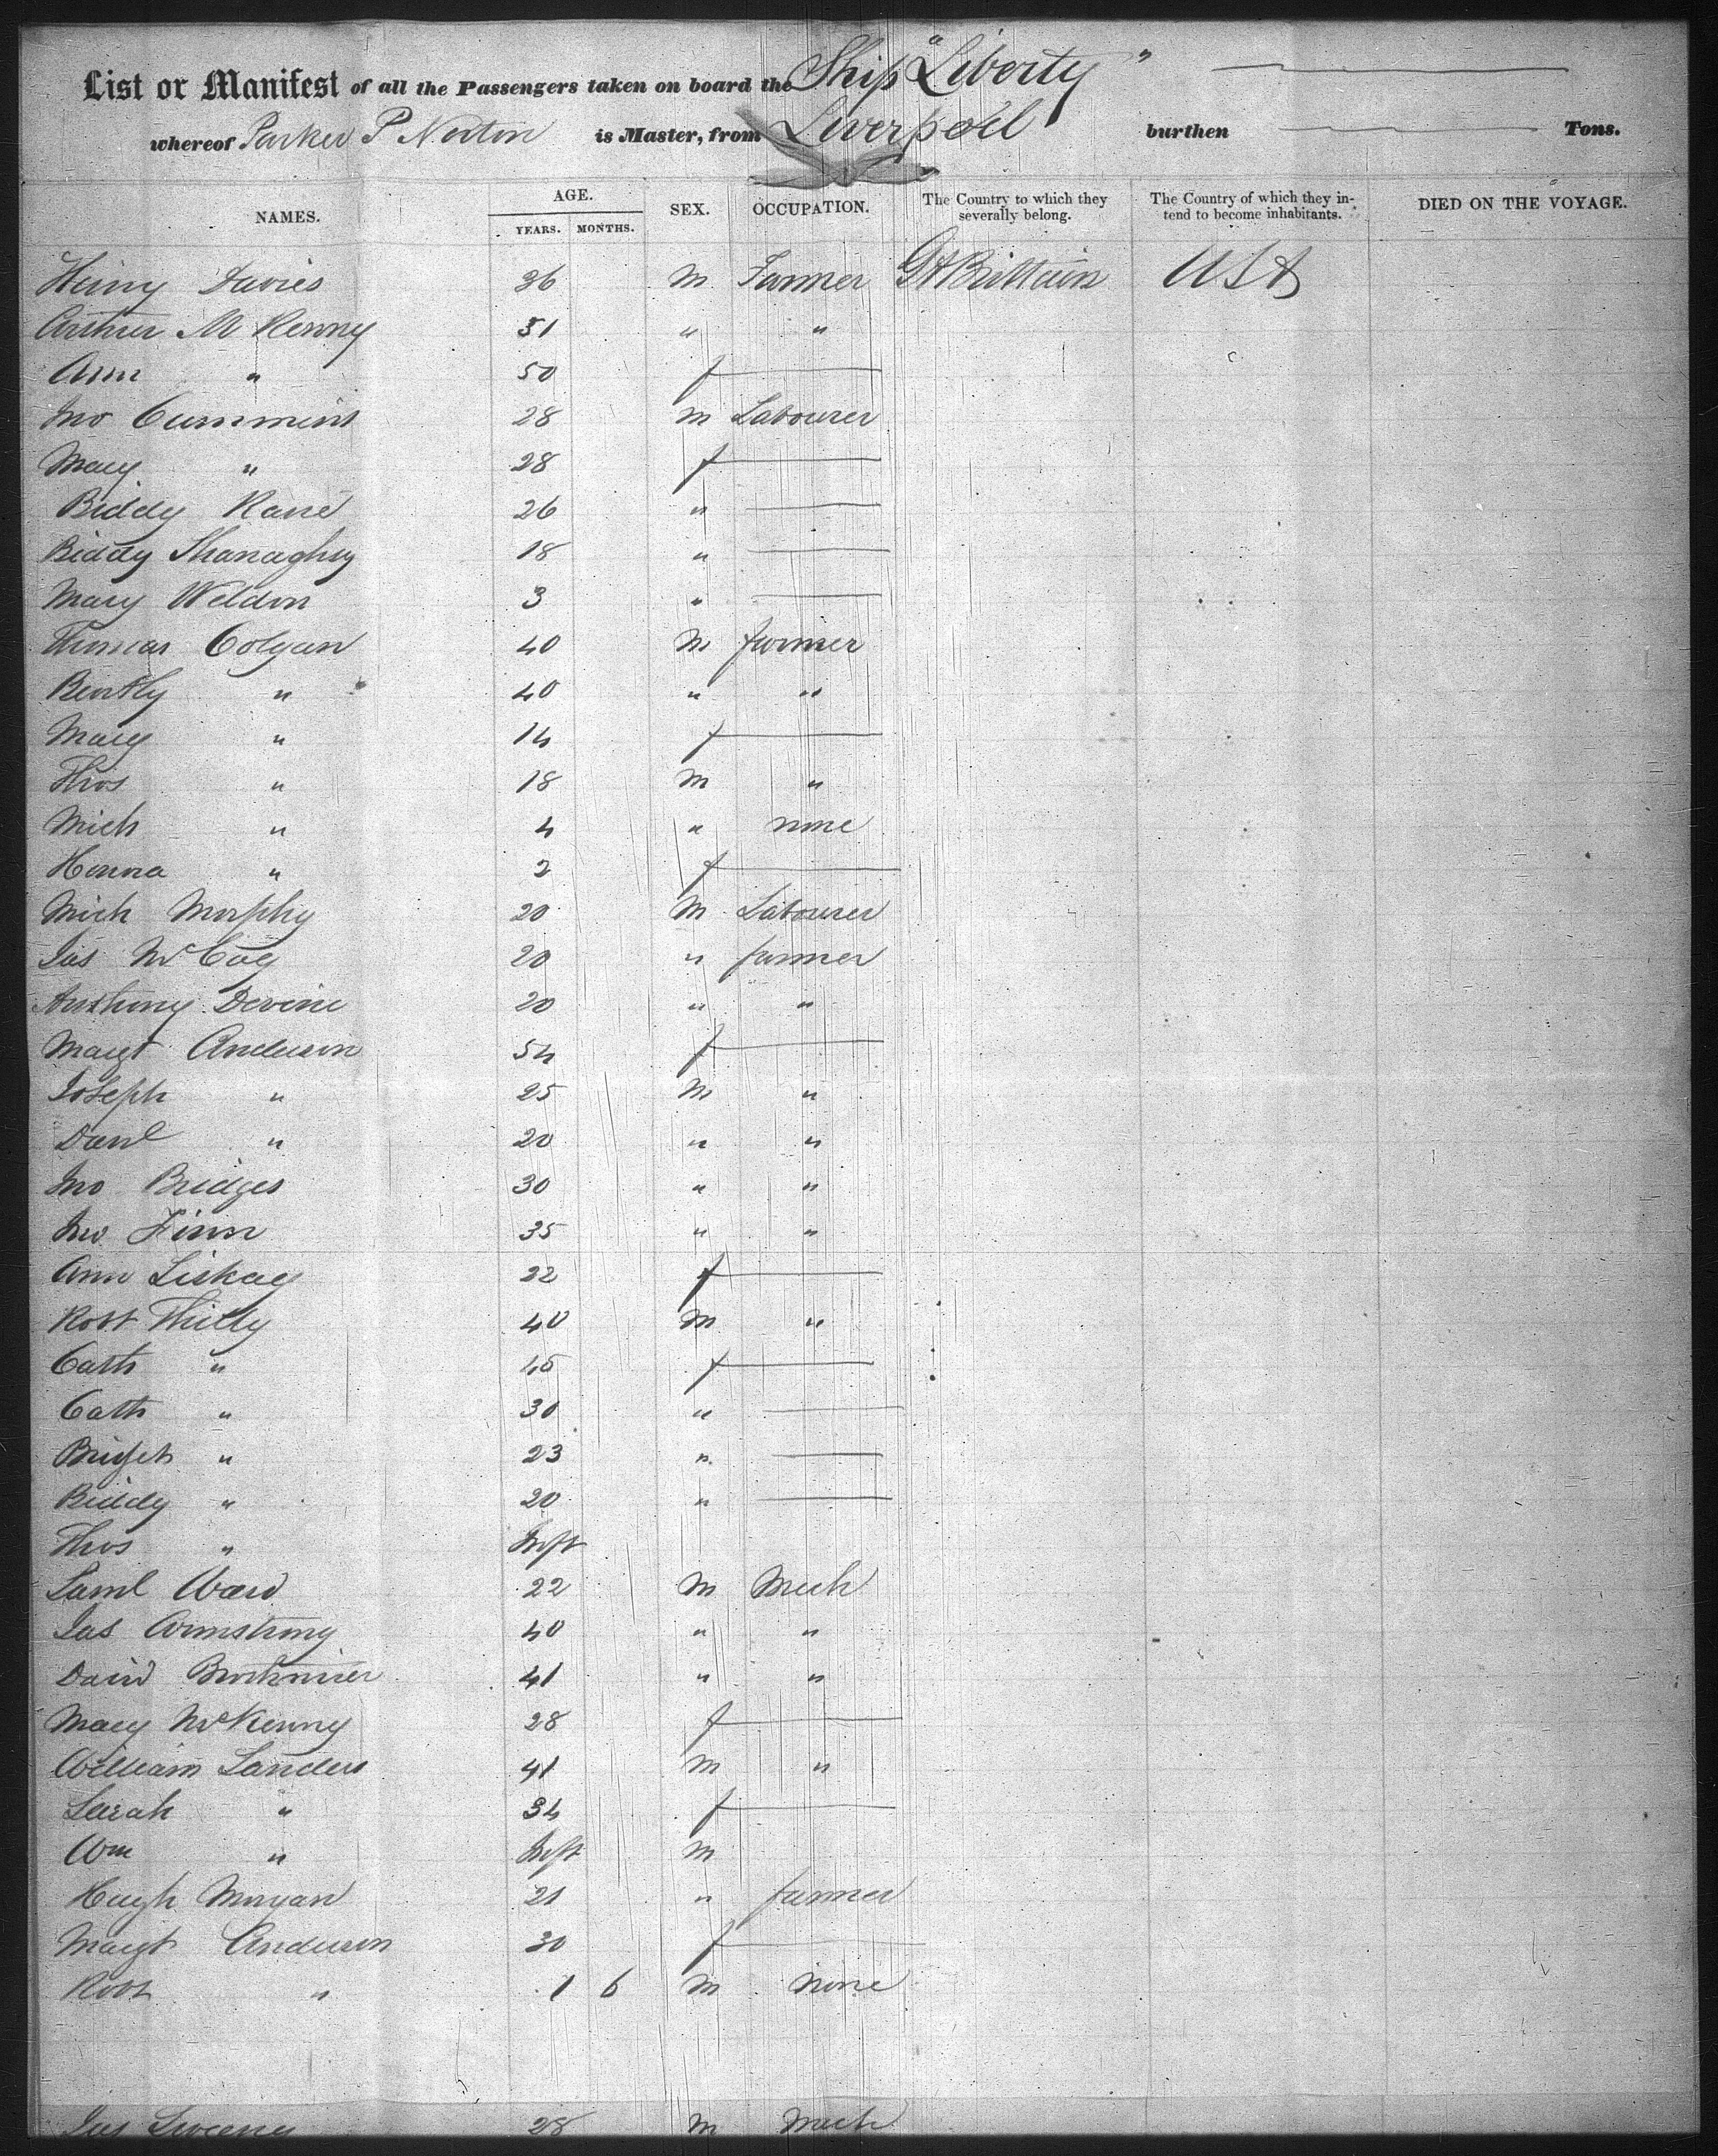 List or Manifest of all the Passengers taken on board the Ship "Liberty"
whereof Parker P Norton is Master, from Liverpool burthen Tons.
NAMES. AGE. YEARS. MONTHS. SEX. OCCUPATION. The Country to which they severally belong. The Country of which they intend to become inhabitants. DIED ON THE VOYAGE.
Henry Davies 36 M Farmer Gt Brittain USA
Arthur McKenny 51 " "
Ann " 50 f
Jno Cummins 28 m Labourer
Mary " 28 f
Biddy Kane 26 "
Biddy Shanaghy 18 "
Mary Weldon 3 "
Thomas Colgan 40 M farmer
Bently " 40 " "
Mary " 14 f
Thos " 18 M "
Mich " 4 " none
Honna " 2 f
Mich Morphy 20 M Labourer
Jas McCoy 20 " farmer
Anthony Devine 20 " "
Margt Anderson 54 f
Joseph " 25 M "
Danl " 20 " "
Jno Bridges 30 " "
Jno Finn 35 " "
Ann Liskay 22 f
Robt Thilly 40 M "
Cath " 45 f
Cath " 30 "
Bridget " 23 "
Biddy " 20 "
Thos " Inft
Saml Ward 22 M Mech
Jas Armstrong 40 " "
David 41 " "
Mary McKenny 28 f
William Sanders 41 M "
Sarah " 34 f
Wm " Inft M
Hugh Morgan 21 " farmer
Margt Anderson 30 f
Robt " 1 6 M None
Jas Sweeny 28 M Mech